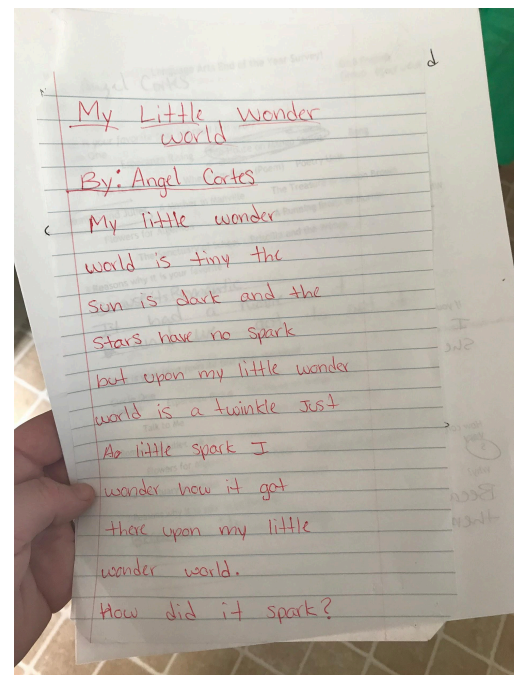 d
My Little Wonder
world
By: Angel Cortes
My little wonder
world is tiny the
sun is dark and the
stars have no spark
but upon my little wonder
world is a twinkle Just
little spark I
wonder how it got
there upon my little
wonder world.
How did it spark?